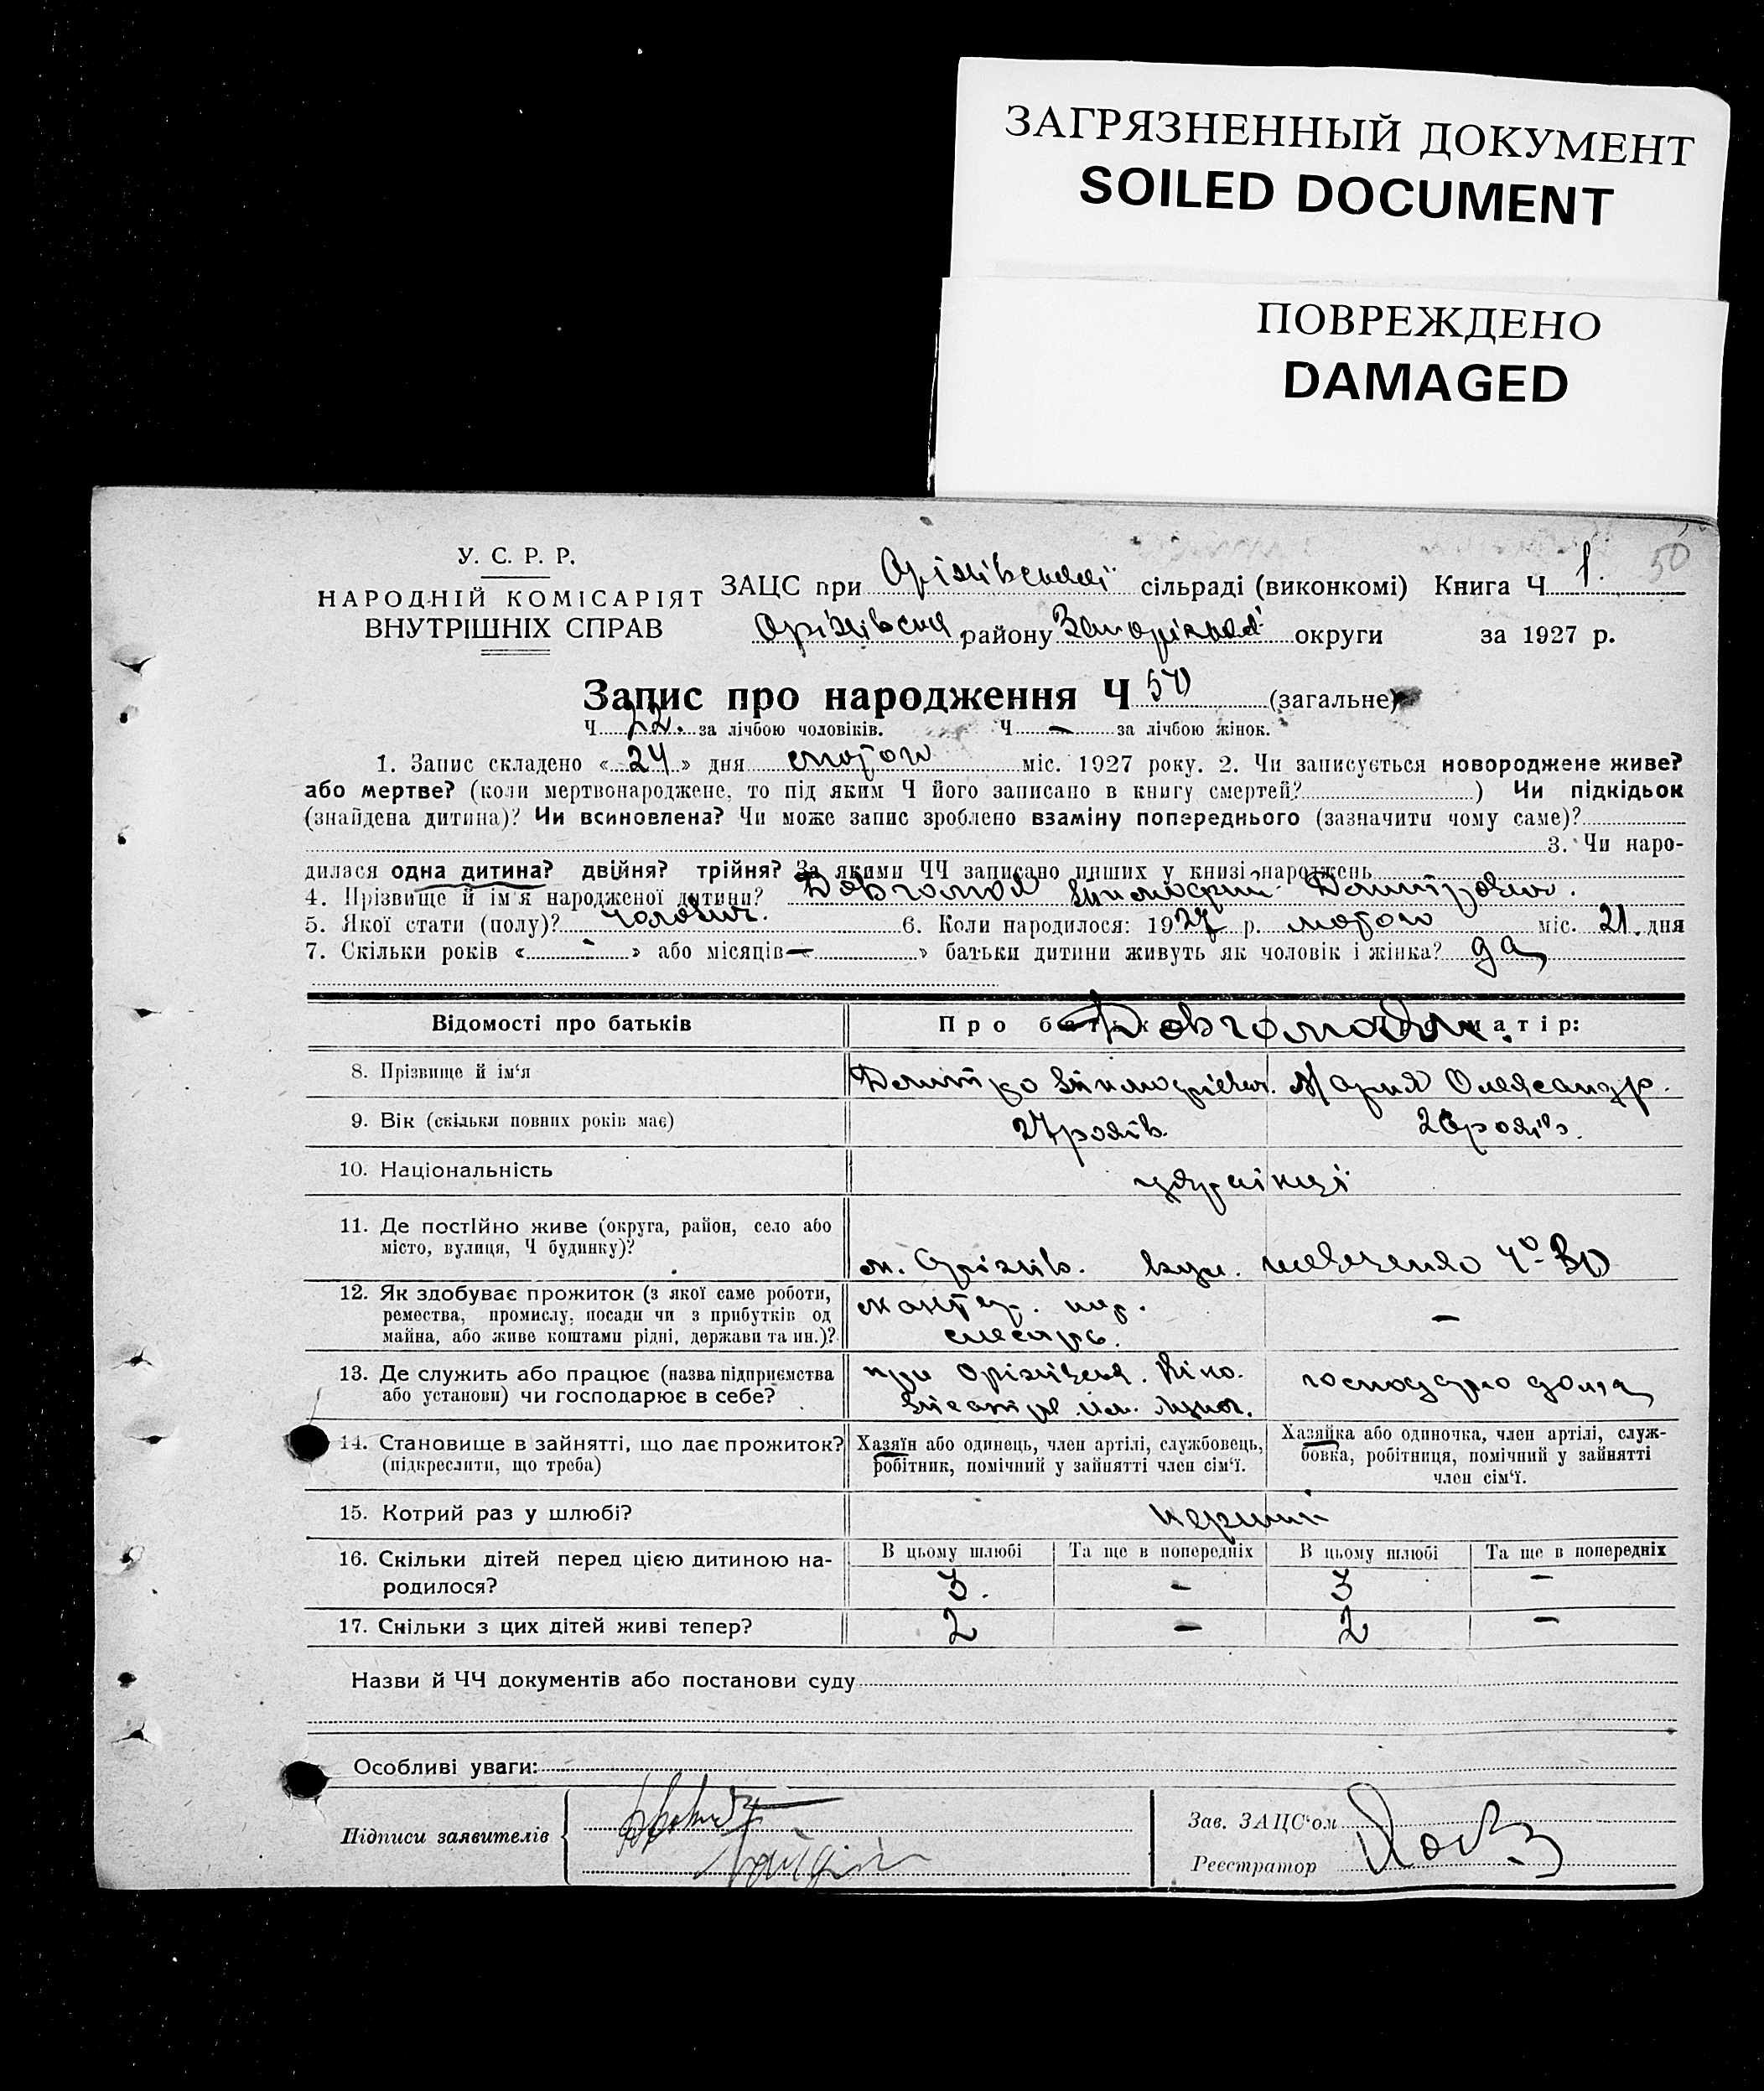 ЗАГРЯЗНЕННЫЙ ДОКУМЕНТ
SOILED DOCUMENT
ПОВРЕЖДЕНО
DAMAGED
50
У. С. Р. Р.
НАРОДНІЙ КОМІСАРІЯТ
ВНУТРІШНІХ СПРАВ
ЗАЦС при Оріхівській сільраді (виконкомі) Книга Ч 1.
Оріхівськ району Запоріжької округи за 1927 р.
Запис про народження Ч 50 (загальне)
Ч 22. за лічбою чоловіків. Ч — за лічбою жінок.
1. Запис складено « 24 » дня лютого міс. 1927 року. 2. Чи записується новороджене живе?
або мертве? (коли мертвонароджене, то під яким Ч його записано в книгу смертей? ) Чи підкідьок
(знайдена дитина)? Чи всиновлена? Чи може запис зроблено взаміну попереднього (зазначити чому саме)?
3. Чи наро-
дилася одна дитина? двійня? трійня? За якими ЧЧ записано инших у книзі народжень
4. Прізвище й ім'я народженої дитини? Дмитрович.
5. Якої стати (полу)? чоловіч. 6. Коли народилося: 1927 р. лютого міс. 21. дня
7. Скільки років « - » або місяців « — » батьки дитини живуть як чоловік і жінка? да
Відомості про батьків
Про батька: Про матір:
8. Прізвище й ім'я Дмитро Мария Олександр.
9. Вік (скільки повних років має) 27 років. 26 років.
10. Національність українці
11. Де постійно живе (округа, район, село або
місто, вулиця, Ч будинку)? м. Оріхів. вул. Шевченко Ч° 30
12. Як здобуває прожиток (з якої саме роботи,
ремества, промислу, посади чи з прибутків од
майна, або живе коштами рідні, держави та ин.)? слесарь. —
13. Де служить або працює (назва підприємства
або установи) чи господарює в себе? при Оріхівськ. Кіно. господарю дома
14. Становище в зайнятті, що дає прожиток?
(підкреслити, що треба)
Хазяїн або одинець, член артілі, службовець,
робітник, помічний у зайнятті член сім'ї.
Хазяйка або одиночка, член артілі, служ-
бовка, робітниця, помічний у зайнятті
член сім'ї.
15. Котрий раз у шлюбі? перший
16. Скільки дітей перед цією дитиною на-
родилося?
В цьому шлюбі Та ще в попередніх В цьому шлюбі Та ще в попередніх
3. - 3 -
17. Скільки з цих дітей живі тепер? 2 - 2 -
Назви й ЧЧ документів або постанови суду
Особливі уваги:
Підписи заявителів
Зав. ЗАЦС'ом
Реєстратор